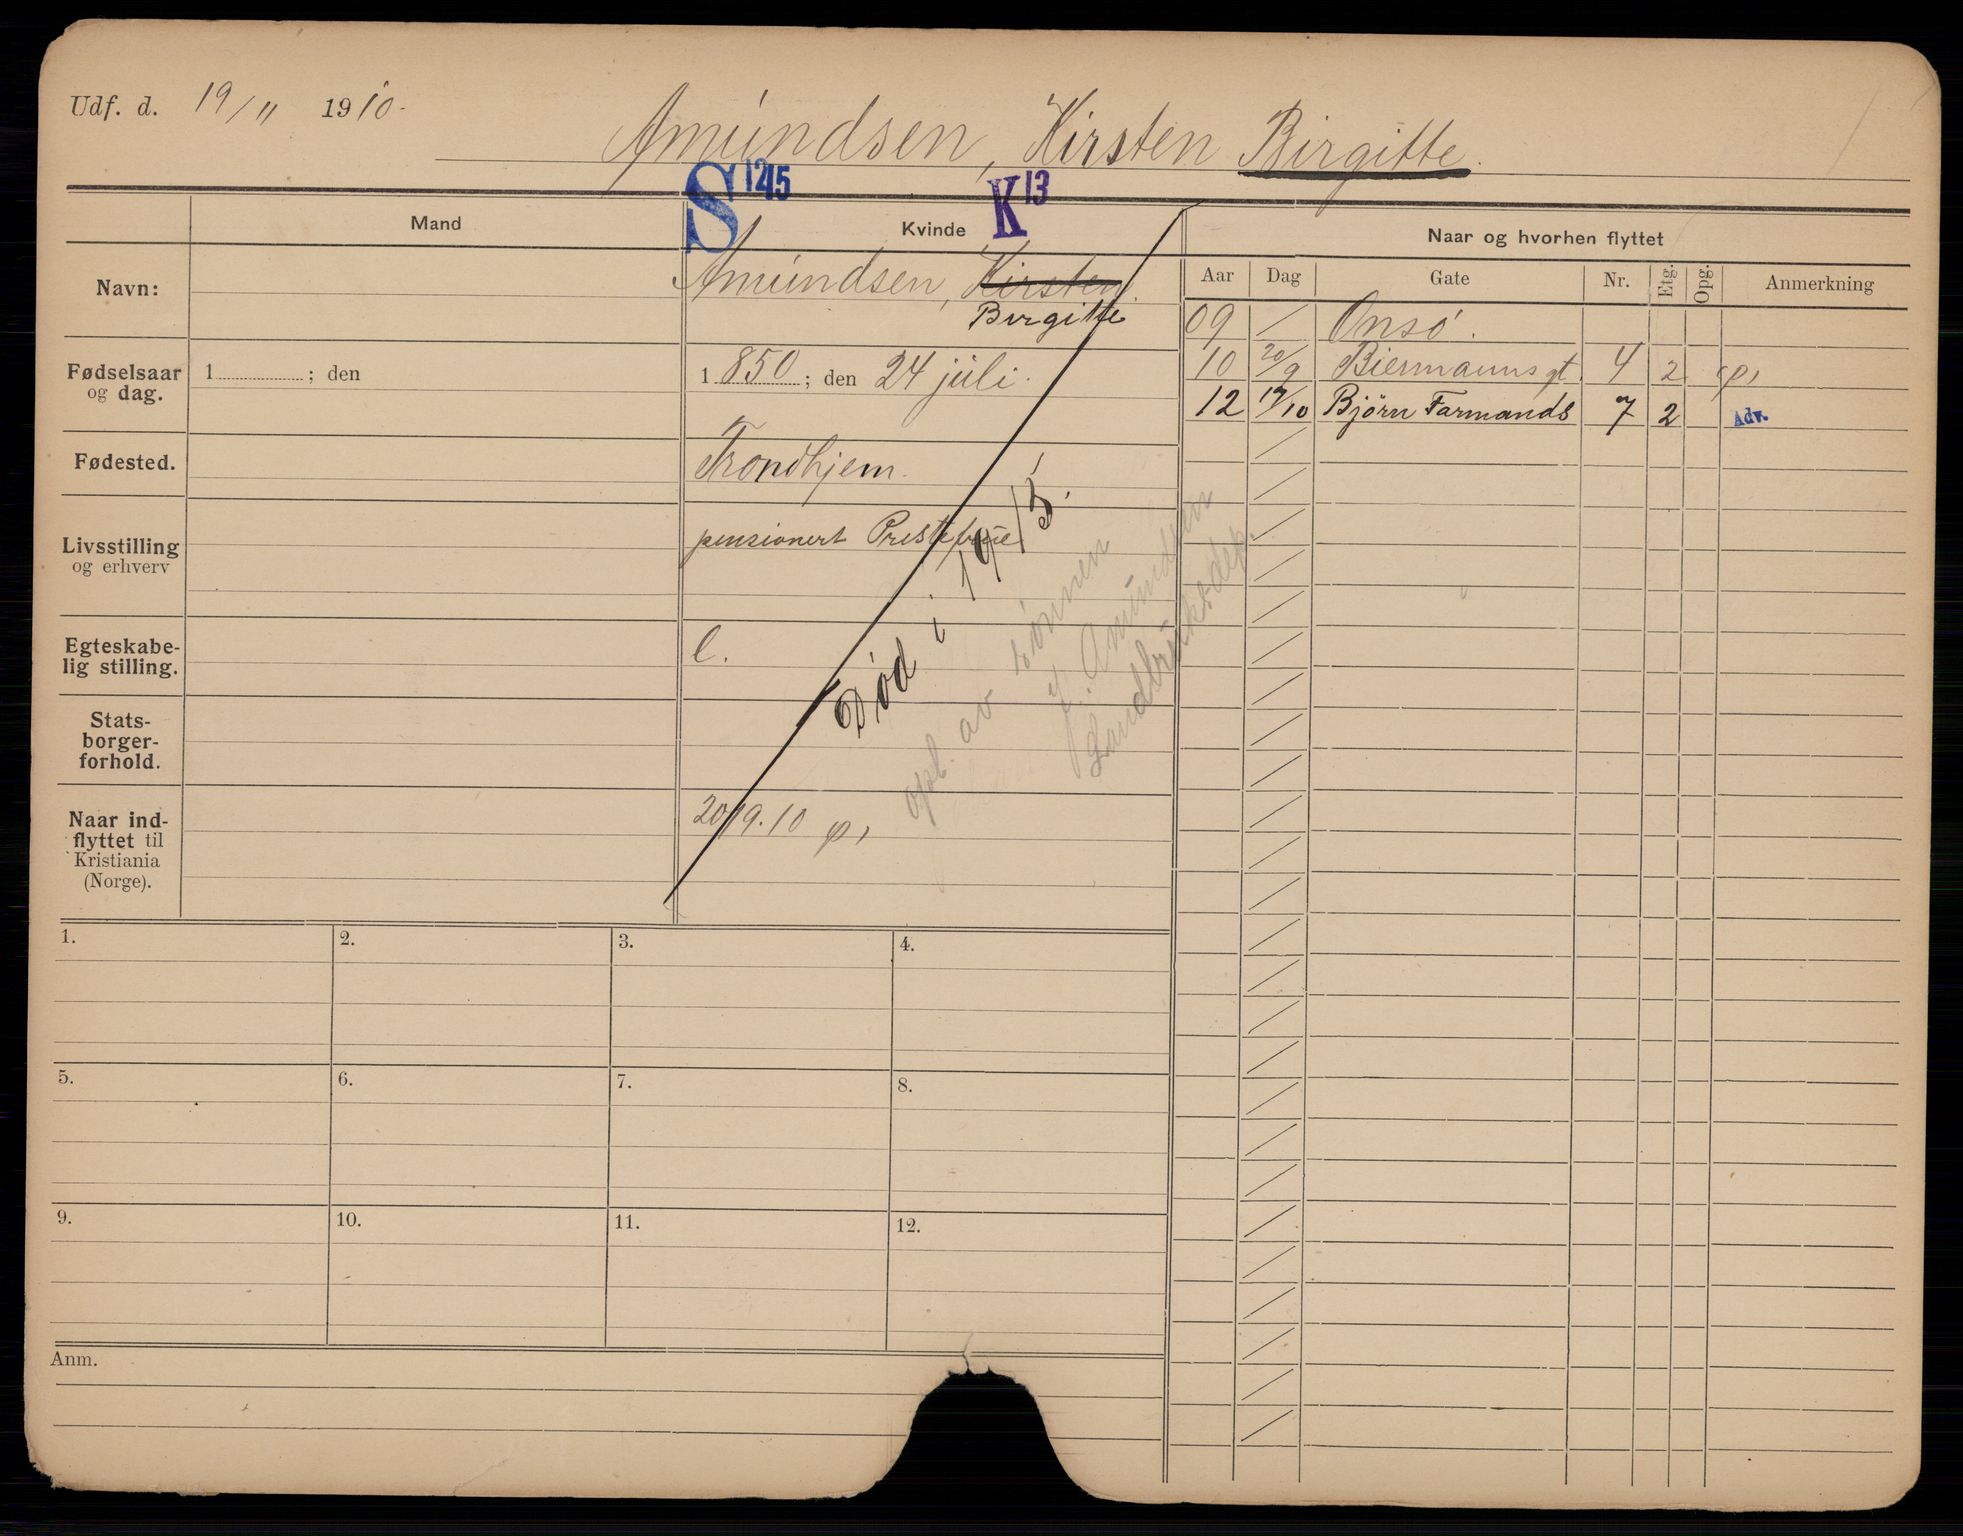 Udf. d. 19/11 1910.
Amundsen, Kirsten Birgitte.
S 12 15
K 13
Mand
Kvinde
Naar og hvorhen flyttet
Navn:
Amundsen, Kirsten.
Birgitte
Aar Dag Gate Nr. Etg. Opg. Anmerkning
09 / Onsö.
10 20/9 Biermanns gt. 4 2 p,
12 17/10 Bjørn Farmands 7 2 Adv.
Fødselsaar
og dag.
1 ; den
1 850 ; den 24 juli.
Fødested.
Trondhjem.
Livsstilling
og erhverv
pensionert Prestefrue
Egteskabe-
lig stilling.
e.
Stats-
borger-
forhold.
Naar ind-
flyttet til
Kristiania
(Norge).
20/9.10 p,
Død i 1915.
opl. av sønnen
J. Amundsen
Landbruksdep.
1. 2. 3. 4.
5. 6. 7. 8.
9. 10. 11. 12.
Anm.